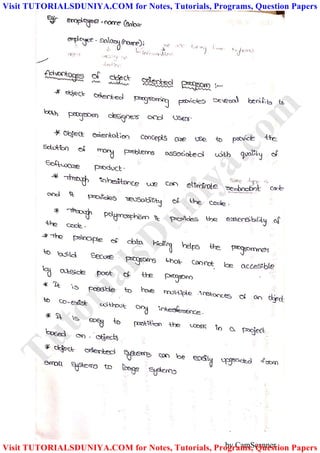 Visit TUTORIALSDUNIYA.COM for Notes, Tutorials, Programs, Question Papers
Eg:- employee-name (
employee-salary(name);
Advantages of object oriented program :-
* object oriented programing provides several benifits to
both program designer and user.
* object orientation concepts are use to provide the
solution of many problems associated with quality of
software product.
* Through inheritance we can eliminate redundant code
and it provides reusability of the code.
* Through polymorphism it provides the extensibility of
the code.
* The principle of data hiding helps the programmer
to build secure programs that cannot be accessible
by outside part of the program
* it is possible to have multiple instances of an object
to co-exist without any interference.
* it is easy to partition the work in a project
based on - objects
* object oriented systems can be easily upgraded from
small systems to large systems
TutorialsDuniya.com
by CamScanner
Visit TUTORIALSDUNIYA.COM for Notes, Tutorials, Programs, Question Papers